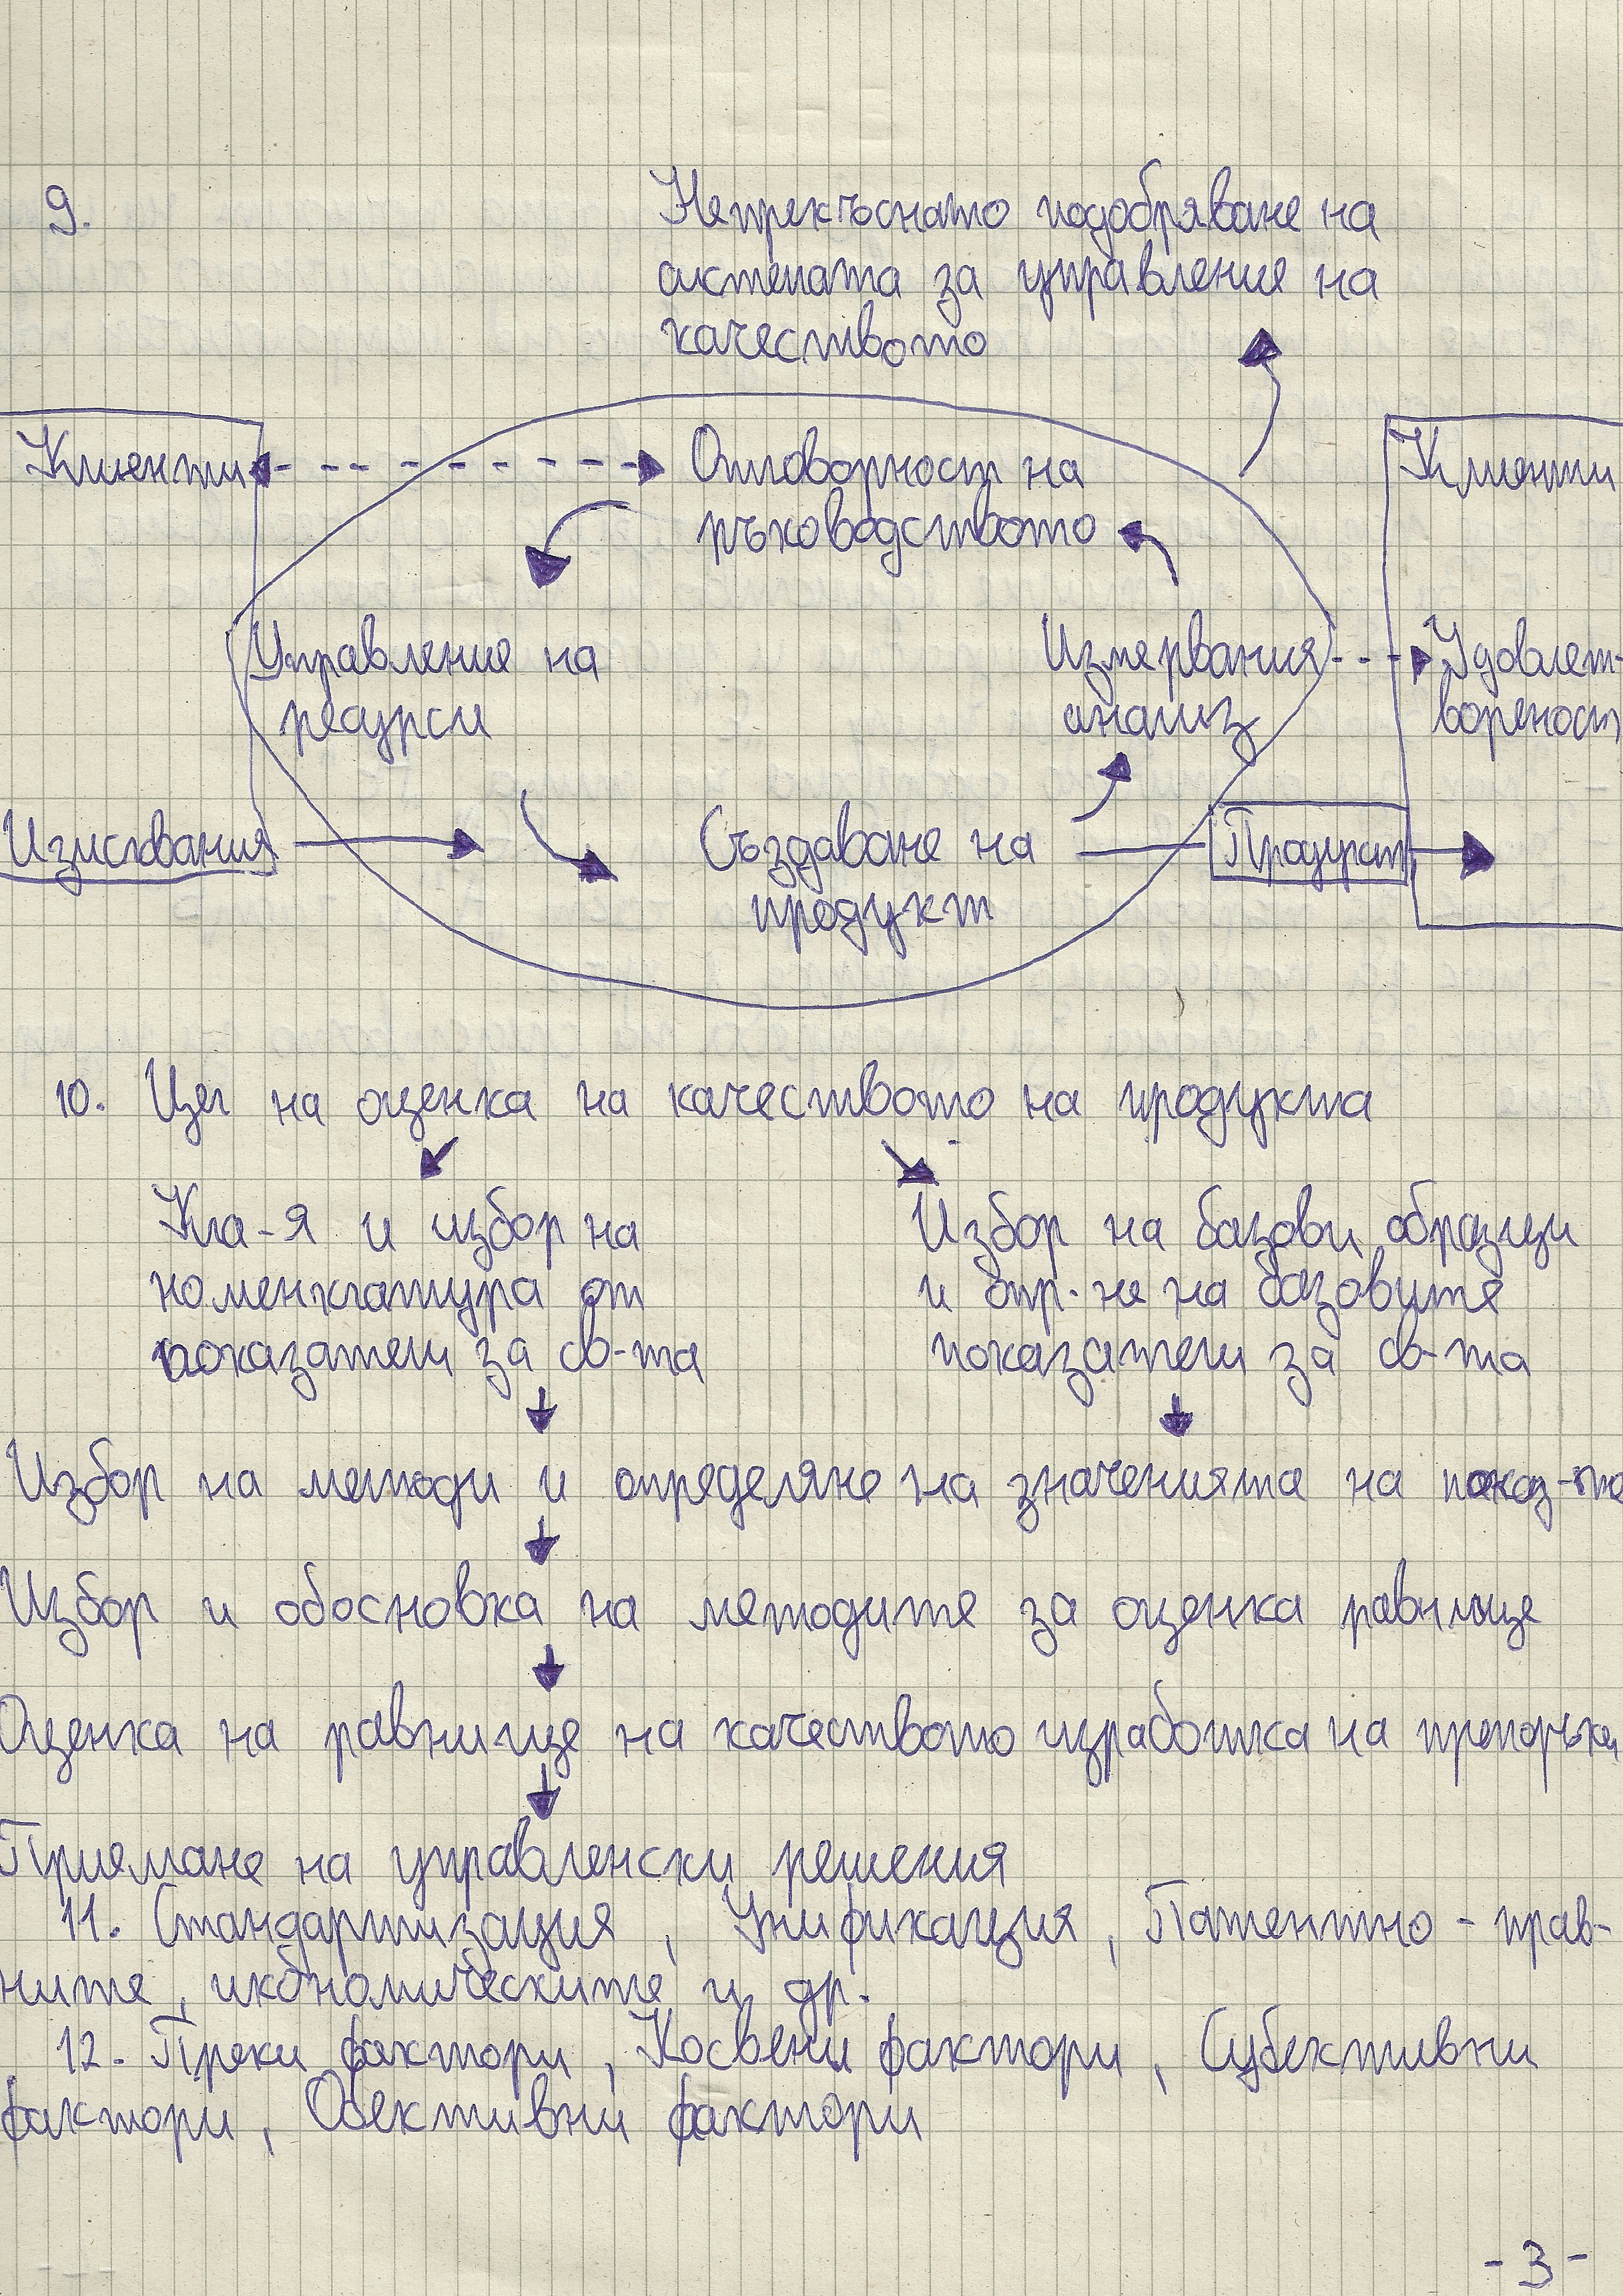 9.
Непрекъснато подобряване на
системата за управление на
качеството
Клиенти
Отговорност на
ръководството
Клиенти
Управление на
ресурси
Измервания
анализ
Удовлет-
вореност
Изисквания
Създаване на
продукт
Продукт
10. Цел на оценка на качеството на продукта
Кла-я и избор на
номенклатура от
показатели за св-та
Избор на базови образци
и опр-не на базовите
показатели за св-та
Избор на методи и определяне на значенията на показ-те
Избор и обосновка на методите за оценка равнище
Оценка на равнище на качеството изработка на препоръки
Приемане на управленски решения
11. Стандартизация, Унификация, Патентно-прав-
ните, икономическите и др.
12. Преки фактори, Косвени фактори, Субективни
фактори, Обективни фактори
-3-